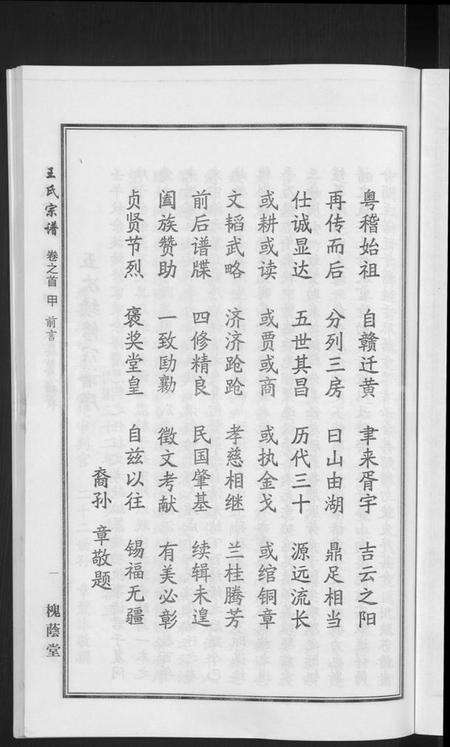 粤稽始祖 自赣迁黄 聿来胥宇 吉云之阳
再传而后 分列三房 曰山由湖 鼎足相当
仕诚显达 五世其昌 历代三十 源远流长
或耕或读 或贾或商 或执金戈 或绾铜章
文韬武略 济济跄跄 孝慈相继 兰桂腾芳
前后谱牒 四修精良 民国肇基 续辑未遑
阖族赞助 一致劻勷 徵文考献 有美必彰
贞贤节烈 褒奖堂皇 自兹以往 锡福无疆
裔孙 章敬题
王氏宗谱 卷之首 甲 前言
一
槐蔭堂